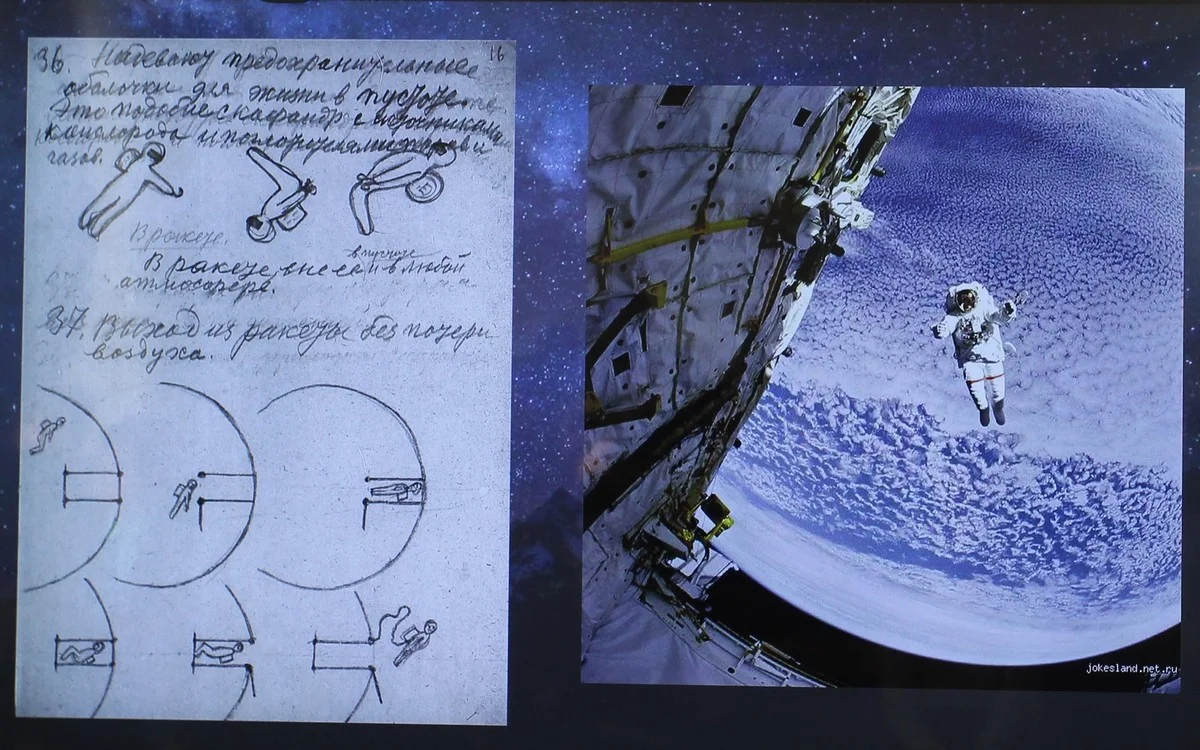 36. Надеваю предохранительные
16
оболочки для жизни в пустоте.
Это подобие скафандр с источниками
кислорода и поглотителями
газов.
В ракете.
в пустоте
В ракете, вне ея и в любой
атмосфере.
37. Выход из ракеты без потери
воздуха.
jokesland.net.ru